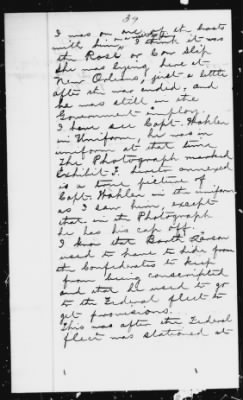 39
I was on one of it, boats
with him, I think it was
the Rose or Cow Slip.
She was lying here at
New Orleans, just a little
after the war ended, and
he was still in the
Government employ.
I have see Capt. Hahler
in Uniform. he was in
uniform at that time
The Photograph marked
Exhibit F. hereto annexed
is a true picture of
Capt. Hahler in the uniform
as I saw him, except
that in the Photograph
he has his cap off.
I know that Booth
used to have to hide from
the Confederates to keep
from being conscripted
and that he used to go
to the Federal fleet to
get provisions.
This was after the Federal
fleet was stationed at